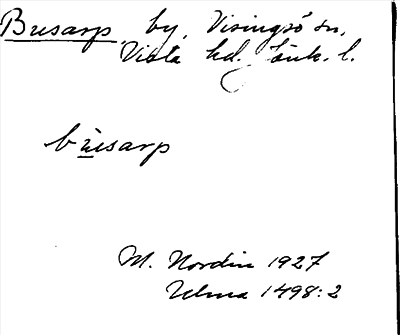 Busarp, by, Visingsö sn,
Vista hd. Jönk. l.
bùsarp
M. Nordin 1927
Ulma 1498:2